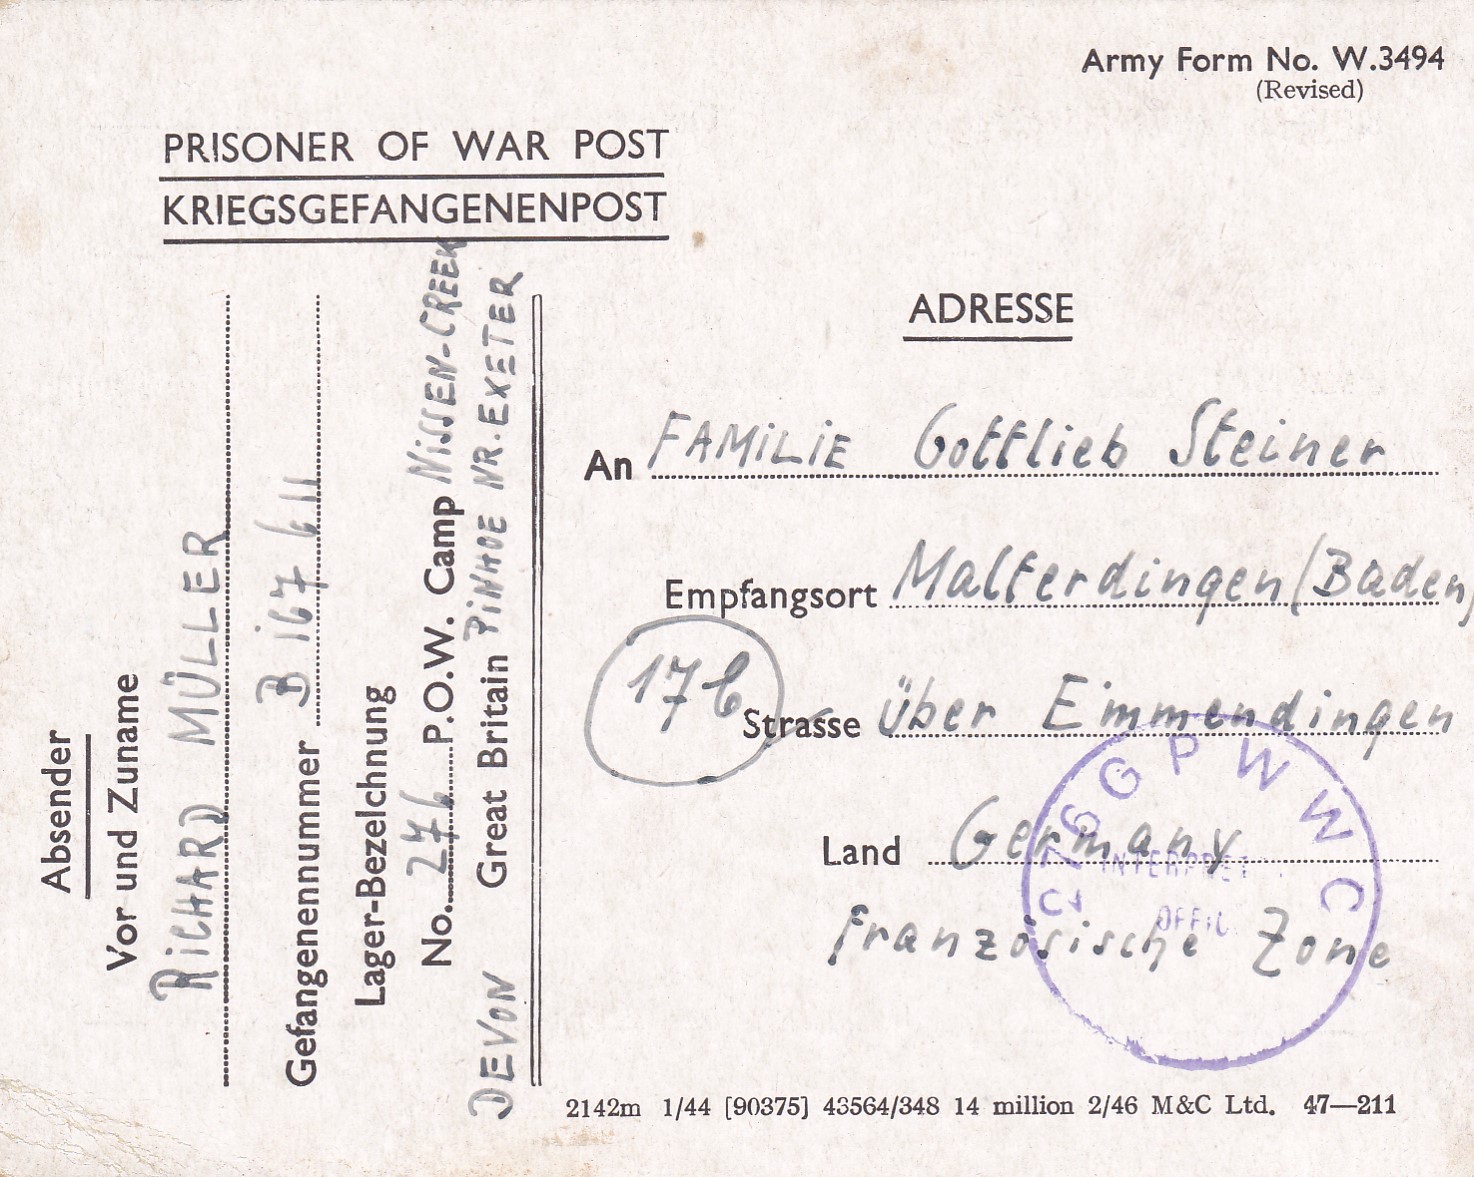 Army Form No. W.3494
(Revised)
PRISONER OF WAR POST
KRIEGSGEFANGENENPOST
Absender
Vor und Zuname
RICHARD MÜLLER
Gefangenennummer B 167 611
Lager-Bezeichnung
No. 276 P.O.W. Camp NISSEN-CREEK
Great Britain PINHOE NR. EXETER
DEVON
ADRESSE
An FAMILIE Gottlieb Steiner
Empfangsort Malterdingen (Baden)
17b
Strasse über Emmendingen
Land Germany
Französische Zone
C 76 G P W W C
INTERPRET
OFFIC
2142m 1/44 [90375] 43564/348 14 million 2/46 M&C Ltd. 47—211